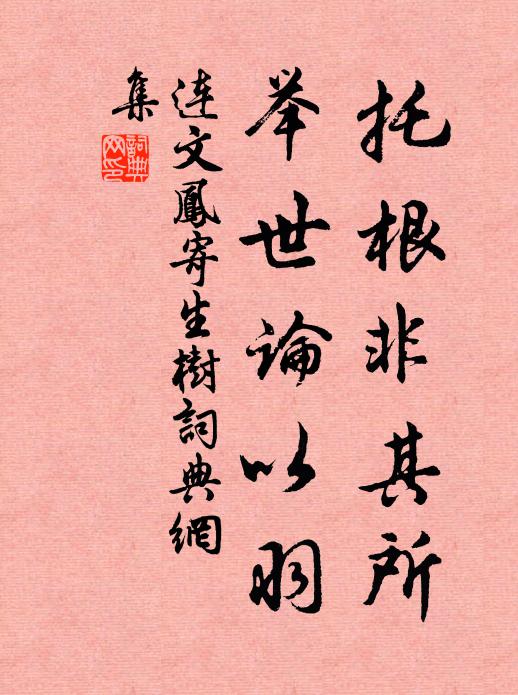 托根非其所
举世論以羽
连文鳳寄生樹詞典網
集
詞典
网印